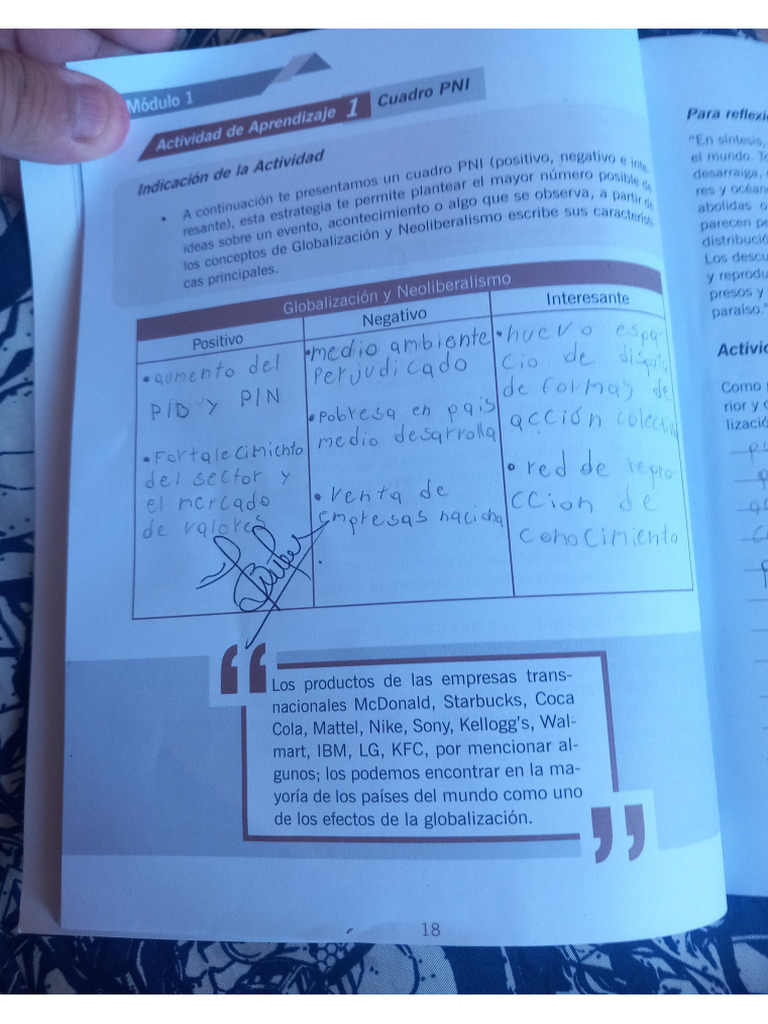 Módulo 1
Actividad de Aprendizaje 1 Cuadro PNI
Indicación de la Actividad
• A continuación te presentamos un cuadro PNI (positivo, negativo e inte-
resante), esta estrategia te permite plantear el mayor número posible de
ideas sobre un evento, acontecimiento o algo que se observa, a partir de
los conceptos de Globalización y Neoliberalismo escribe sus característi-
cas principales.
Globalización y Neoliberalismo
Positivo
Negativo
Interesante
• aumento del
PIB y PIN
• Fortalecimiento
del sector y
el mercado
de valores
• medio ambiente
perjudicado
• Pobresa en pais
medio desarrolla
• venta de
empresas naciona
• nuevo espa-
cio de disputa
de formas de
acción colectiva
• red de repro-
ccion de
conocimiento
“ Los productos de las empresas trans-
nacionales McDonald, Starbucks, Coca
Cola, Mattel, Nike, Sony, Kellogg's, Wal-
mart, IBM, LG, KFC, por mencionar al-
gunos; los podemos encontrar en la ma-
yoría de los países del mundo como uno
de los efectos de la globalización. ”
18
Para reflexi
“En síntesis,
el mundo. To
desarraiga,
res y océan
abolidas o
parecen pe
distribució
Los descu
y reprodu
presos y
paraíso.”
Activid
Como
rior y
lizació